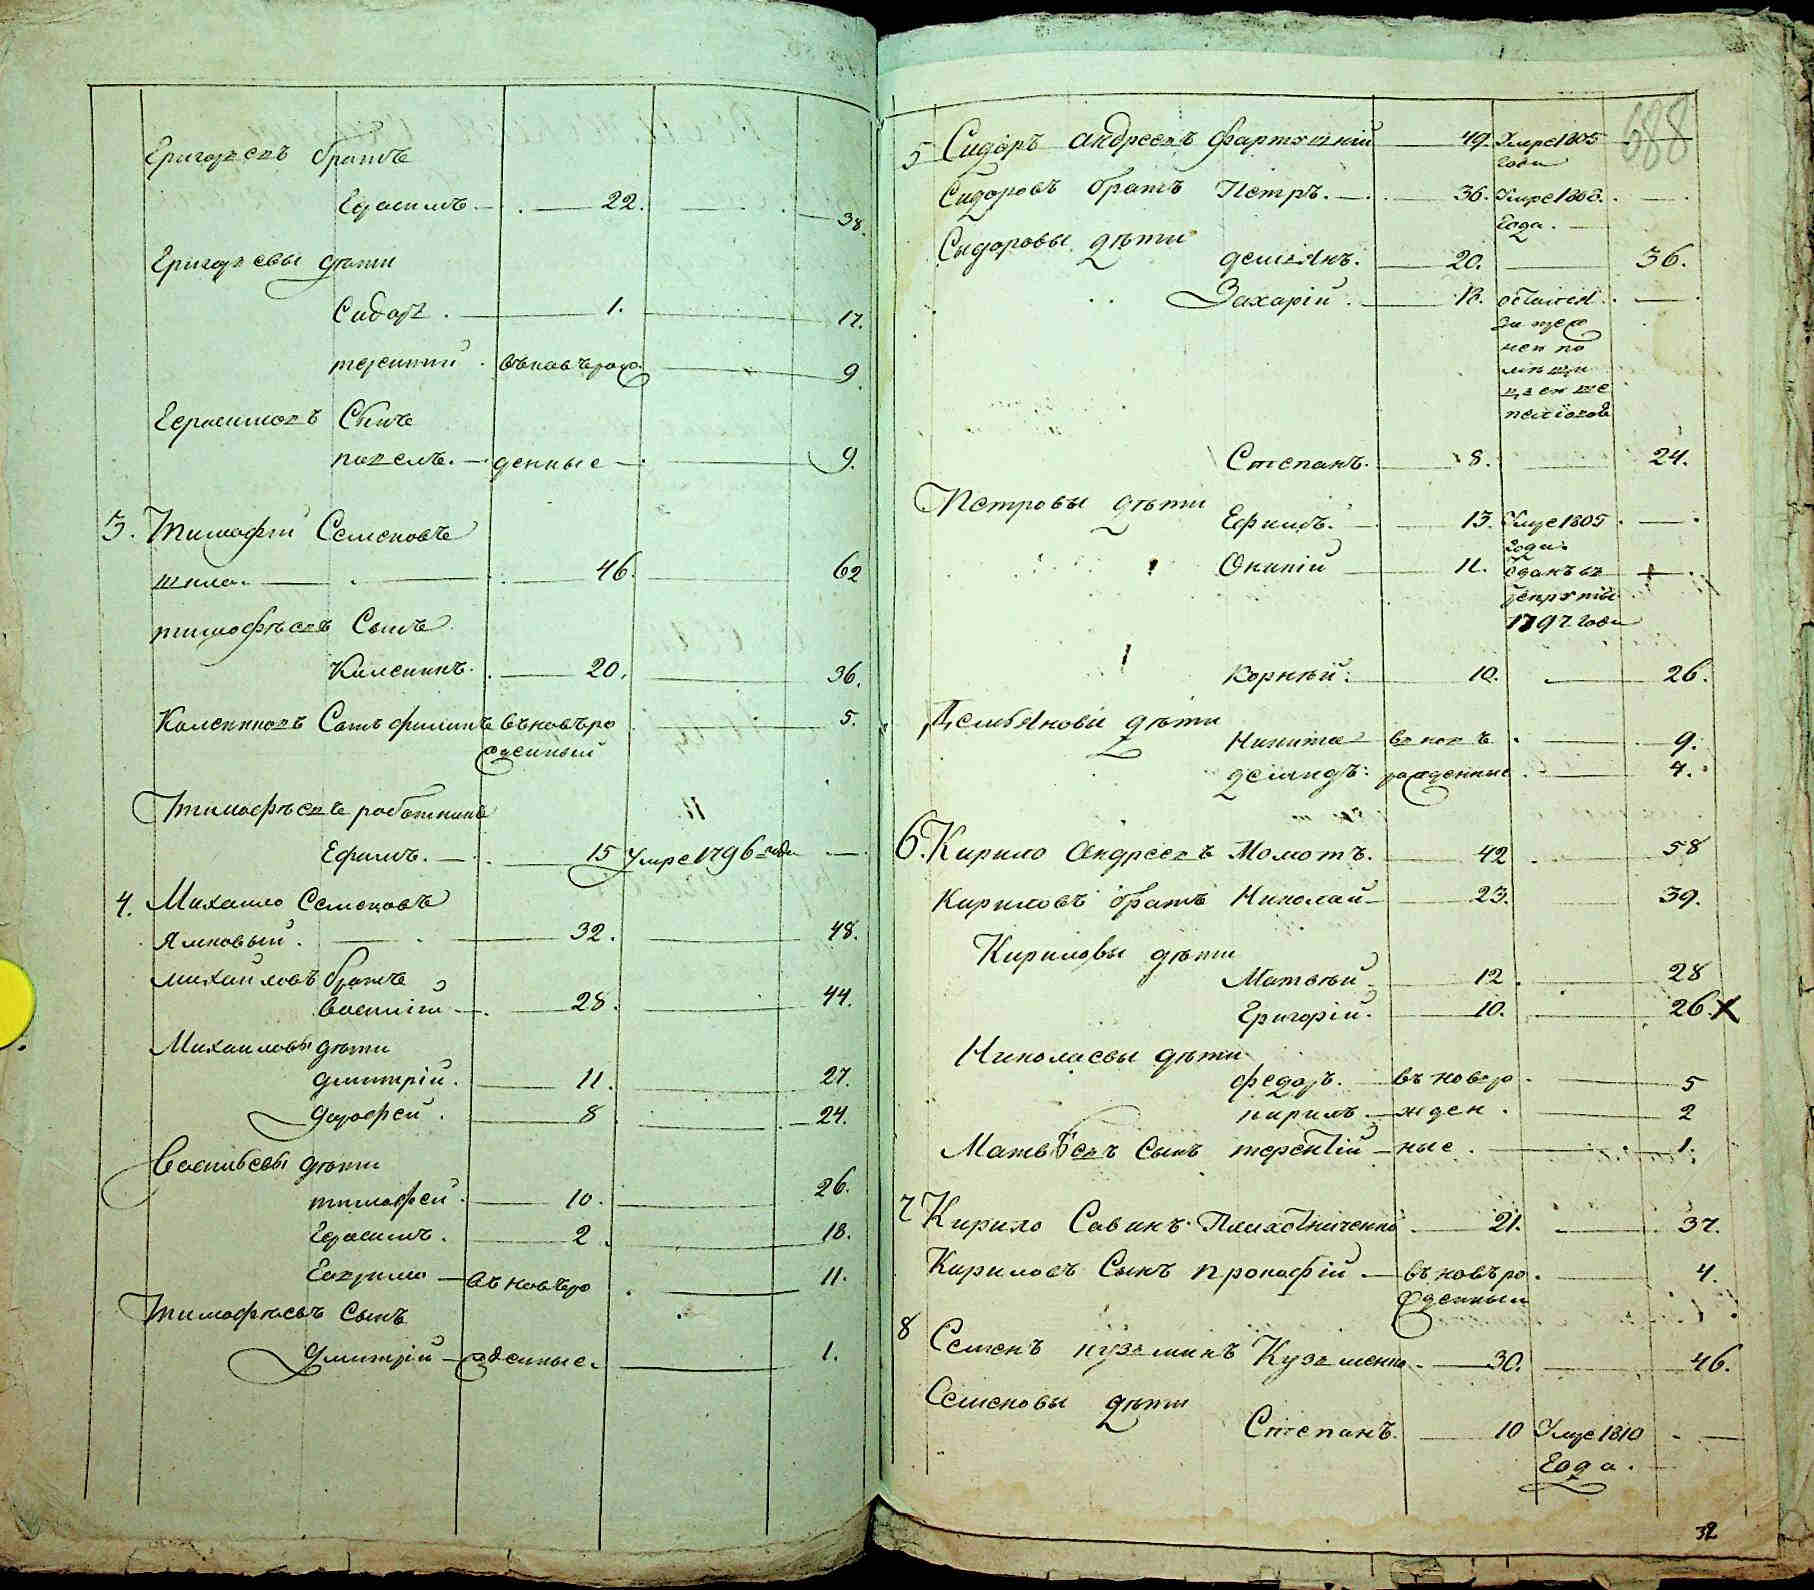 Григорьевъ братъ
Герасимъ. 22. 38.
Григорьевы дѣти
Сидоръ. 1. 17.
терентий. въновърож 9.
Герасимовъ Сынъ
павелъ. денные 9.
3. Тимофѣй Семеновъ
шило. 46. 62
тимофѣевъ Сынъ
Каленикъ. 20. 36.
Калениковъ Сынъ филипъ въновъро 5.
жденный
Тимофѣевъ работникъ
Ефимъ. 15 умре 1796 года
4. Михаило Семеновъ
32. 48.
михаиловъ братъ
василій 28. 44.
Михаиловы дѣти
дмитрій. 11. 27.
дорофей. 8 24.
Васильевы дѣти
тимофей. 10. 26.
Герасимъ. 2 18.
Гаврило въновъро 11.
Тимофѣевъ сынъ
дмитрій жденные. 1.
688
5 Сидоръ андреевъ 49. Умре 1805
года
Сидоровъ братъ Петръ. 36. Умре
Года.
Сыдоровы дѣти
демьянъ. 20. 36.
Захарій.
Степанъ. 8. 24.
Петровы дѣти
Ефимъ. 13. Умре 1805
Года.
Онипій 11. Зданъ въ
рекруты
1797 года
Корнѣй. 10. 26.
Демьянови дѣти
Никита вновъ 9.
рожденние 4.
6. Кирило Андреевъ Момотъ. 42 58
Кириловъ братъ Николай 23. 39.
Кириловы дѣти
Матвѣй 12. 28
Григорій. 10. 26. X
Николаевы дѣти
федоръ. въ новоро 5
кирилъ жден. 2
Матвѣевъ сынъ терентій ные. 1.
7 Кирило Савинъ 21. 37.
Кириловъ Сынъ прокофій въновъро. 4.
жденный
8 Семенъ кузьминъ Кузьменко. 30. 46.
Семеновы дѣти
Степанъ. 10 Умре 1810
Года.
32